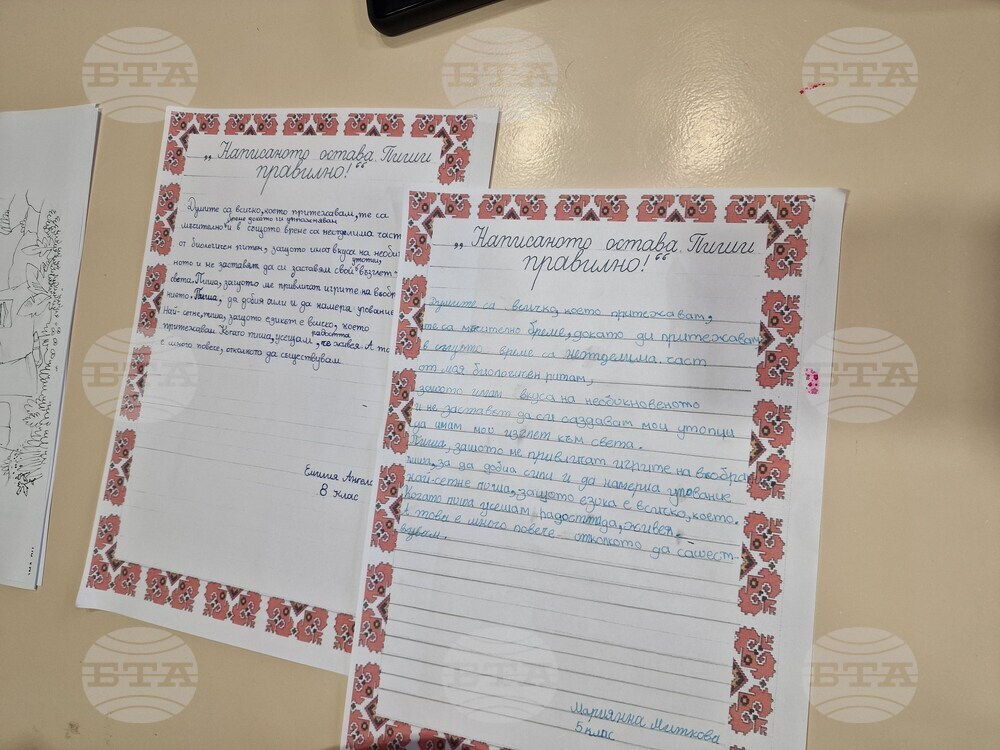 БТА БТА БТА
„Написаното остава. Пиши
правилно!“
Думите са всичко, което притежавам, те са
мислително и в същото време са неотделима част
от биологичен ритъм, защото имат вкуса на необик
ното и не заставят да си заставям свой възглет-
света. Пиша, защото ме привличат игрите на въобр
нието. Пиша, да добия сили и да намеря упование
Най-сетне, пиша, защото езикът е всичко, което
притежавам. Когато пиша, усещам, живея. А то
е много повече, отколкото да съществувам.
радостта
утопии,
Емилия Ангел
8 клас
„Написаното остава. Пиши
правилно!“
Думите са всичко, което притежавам,
те са мислително време, докато ди притежавам
в същото време са неотделима част
от моя биологисен ритам,
защото имам вкуса на необикновеното
и не заставет да си саздавам мои утопии
да имам мой изглет към света.
Пиша, защото ме привличат игрите на въображ
пиша, за да добиа сили и да намериа упование
най-сетне пиша, защото езика е всичко, което.
Когато пиша усещам радосттда, живея -
А това е много повече отколкото да сашест-
вувам.
Мариянна Миткова
5 клас
БТА БТА БТА
БТА БТА БТА